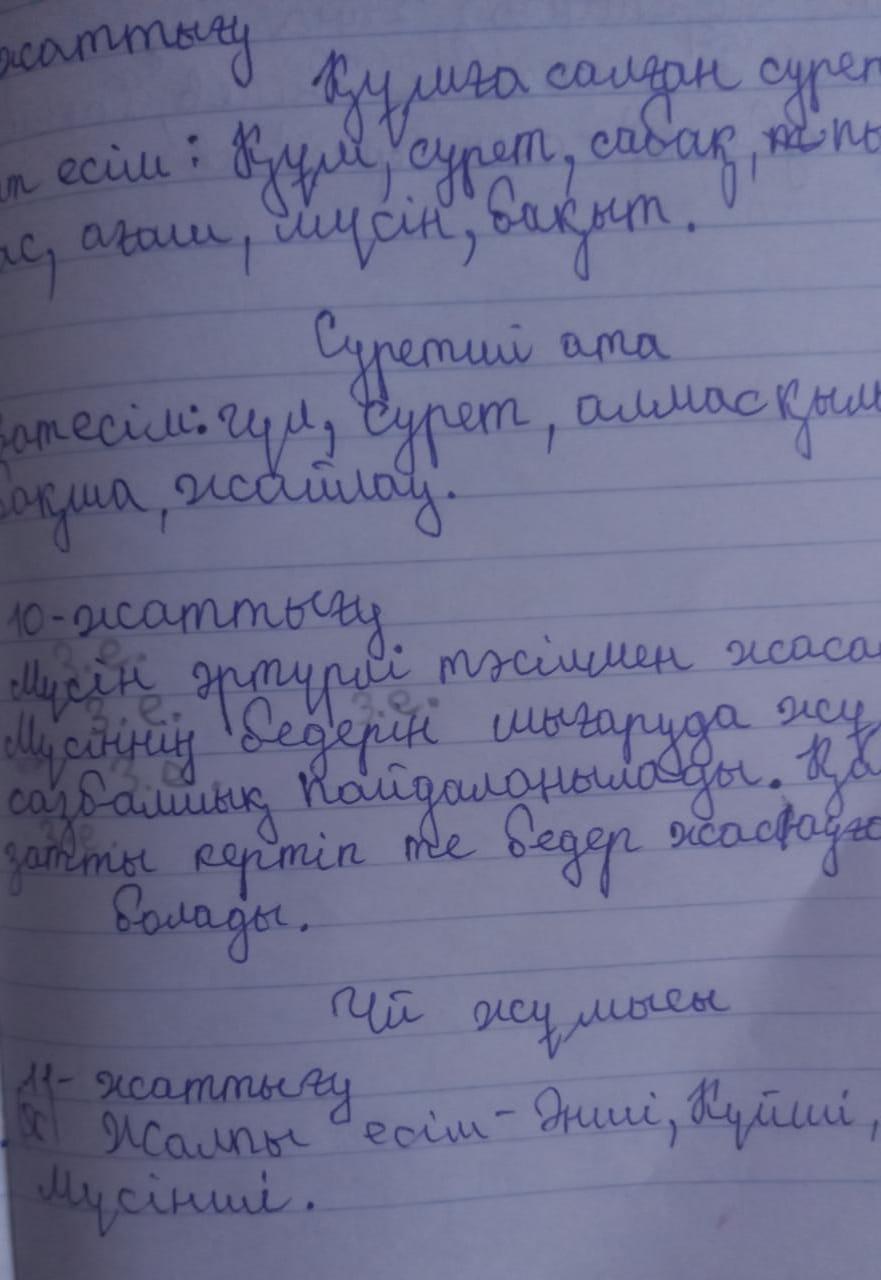 жаттығу
Құмға салған сурет
ат есім: Құм, сурет, сабақ,
ас, ағаш, мүсін, бақыт.
Суретші ата
Затесім: гүл, сурет, алмас қым
бақша, жайлау.
10-жаттығу
з.е.
Мүсін әртүрлі тәсілмен жаса
з.е. з.е.
Мүсіннің бедерін шығаруда жу
з.е.
сазбалшық пайдаланылады. Қа
з.е
затты кертіп те бедер жасауға
болады.
Үй жұмысы
11-жаттығу
Жалпы есім - Әнші, Күйші,
Мүсінші.